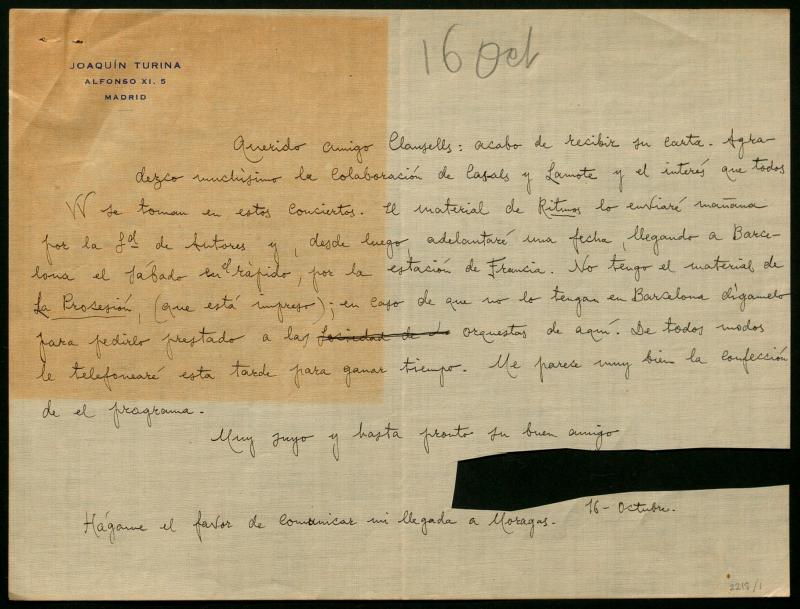 16 Oct
JOAQUÍN TURINA
ALFONSO XI. 5
MADRID
Querido amigo Clausells: acabo de recibir su carta. Agra-
dezco muchísimo la colaboración de Casals y Lamote y el interés que todos
VV se toman en estos conciertos. El material de Ritmos lo enviaré mañana
por la Sd. de Autores y, desde luego, adelantaré una fecha, llegando a Barce-
lona el sábado en el rápido, por la estación de Francia. No tengo el material de
La Procesión, (que está impreso); en caso de que no lo tengan en Barcelona dígamelo
para pedirlo prestado a las Sociedad de de orquestas de aquí. De todos modos
le telefonearé esta tarde para ganar tiempo. Me parece muy bien la confección
de el programa.
Muy suyo y hasta pronto su buen amigo
16-Octubre.
Hágame el favor de comunicar mi llegada a Moragas.
2218/1